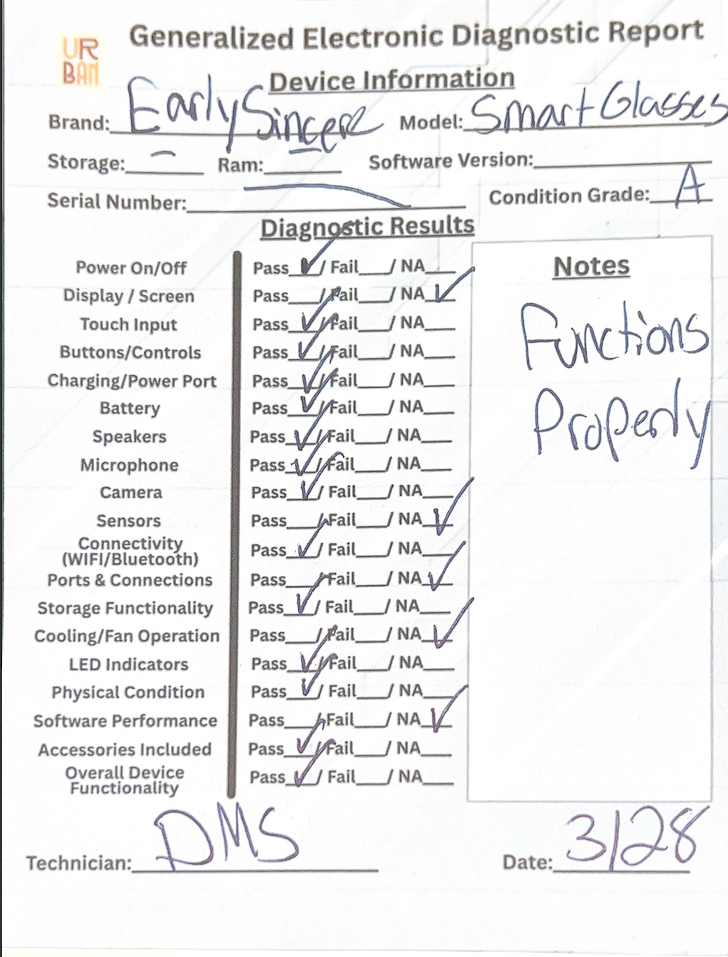 UR
BAN
Generalized Electronic Diagnostic Report
Device Information
Brand: EarlySincere Model: Smart Glasses
Storage: — Ram: Software Version:
Serial Number: Condition Grade: A
Diagnostic Results
Power On/Off Pass ✓/ Fail / NA
Display / Screen Pass / Fail / NA ✓
Touch Input Pass ✓/ Fail / NA
Buttons/Controls Pass ✓/ Fail / NA
Charging/Power Port Pass ✓/ Fail / NA
Battery Pass ✓/ Fail / NA
Speakers Pass ✓/ Fail / NA
Microphone Pass ✓/ Fail / NA
Camera Pass ✓/ Fail / NA
Sensors Pass / Fail / NA ✓
Connectivity
(WIFI/Bluetooth) Pass ✓/ Fail / NA
Ports & Connections Pass / Fail / NA ✓
Storage Functionality Pass ✓/ Fail / NA
Cooling/Fan Operation Pass / Fail / NA ✓
LED Indicators Pass ✓/ Fail / NA
Physical Condition Pass ✓/ Fail / NA
Software Performance Pass / Fail / NA ✓
Accessories Included Pass ✓/ Fail / NA
Overall Device
Functionality Pass ✓/ Fail / NA
Notes
Functions
Properly
Technician: DMS Date: 3/28